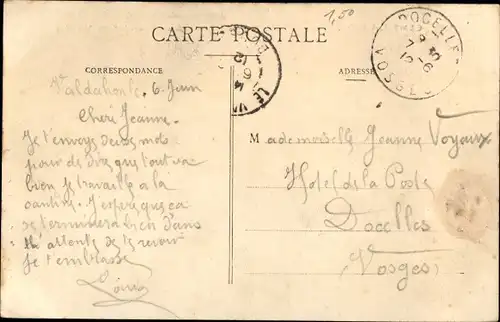 1,50
CARTE POSTALE
CORRESPONDANCE
ADRESSE
DOCELLES
7-6
12
VOSGES
Valdahon le 6 Juin
Cheri Jeanne.
Je t'envoys deux mots
pour de dire que tout va
bien Je travaille a la
cantine. J'espère que ça
se terminera bien Dans
l'attente de te revoir
Je t'embrasse
Louis
Mademoiselle Jeanne Voyaux
Hotel de la Poste
Docelles
Vosges